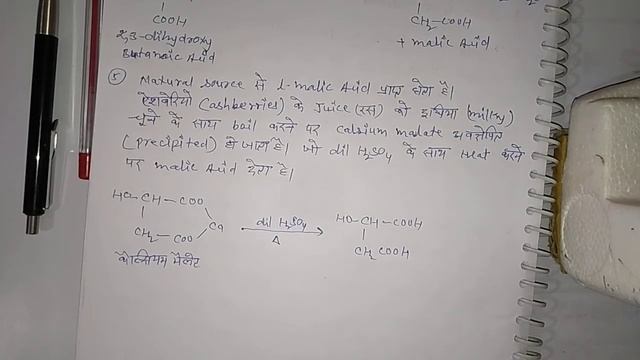 COOH
CH₂-COOH
2,3-dihydroxy
± malic Acid
Butanoic Acid
⑤ Natural source से l-malic Acid प्राप्त होता है।
ऐशबेरियो (ashberries) के Juice (रस) को दूधिया (milky)
चूने के साथ boil करने पर Calcium malate अवक्षेपित
(precipited) हो जाता है। जो dil H₂SO₄ के साथ Heat करने
पर malic Acid देता है।
HO-CH-COO
dil H₂SO₄
HO-CH-COOH
Ca
Δ
CH₂-COO
CH₂COOH
कैल्सियम मैलेट